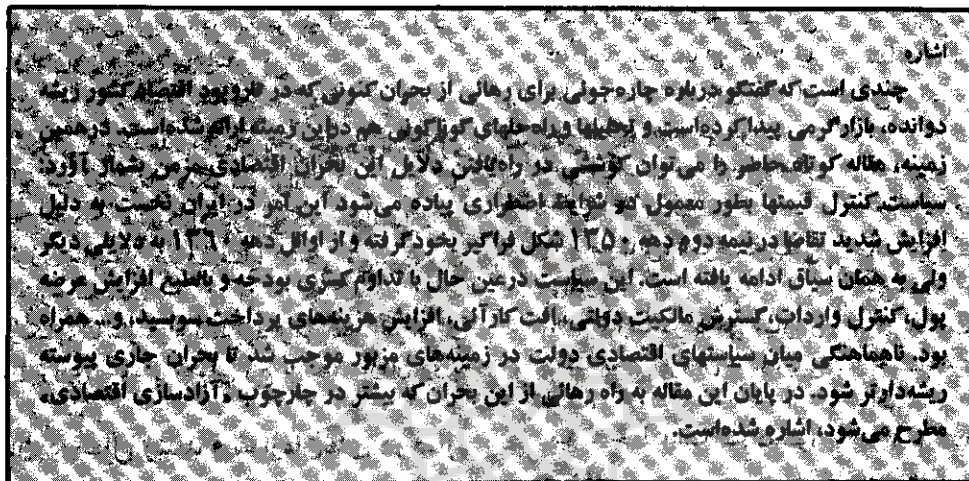 اشاره
چندی است که گفتگو درباره چاره‌جوئی برای رهائی از بحران کنونی که در تاروپود اقتصاد کشور ریشه
دوانده، بازار گرمی پیدا کرده‌است و تحلیلها و راه‌حلهای گوناگونی هم دراین زمینه ارائه شده‌است. درهمین
زمینه، مقاله کوتاه حاضر را می‌توان کوششی در راه یافتن دلایل این بحران اقتصادی مزمن بشمار آورد.
سیاست کنترل قیمتها بطور معمول در شرایط اضطراری پیاده می‌شود. این امر در ایران نخست به دلیل
افزایش شدید تقاضا در نیمه دوم دهه ۱۳۵۰ شکل فراگیر بخود گرفته و از اوائل دهه ۱۳۶۰ به دلایلی دیگر
ولی به همان سیاق ادامه یافته است. این سیاست درعین حال با تداوم کسری بودجه و بالطبع افزایش عرضه
پول، کنترل واردات، گسترش مالکیت دولتی، افت کارآئی، افزایش هزینه‌های پرداخت سوبسید، و... همراه
بود. ناهماهنگی میان سیاستهای اقتصادی دولت در زمینه‌های مزبور موجب شد تا بحران جاری پیوسته
ریشه‌دارتر شود. در پایان این مقاله به راه رهائی از این بحران که بیشتر در چارچوب «آزادسازی اقتصادی»
مطرح می‌شود، اشاره شده‌است.